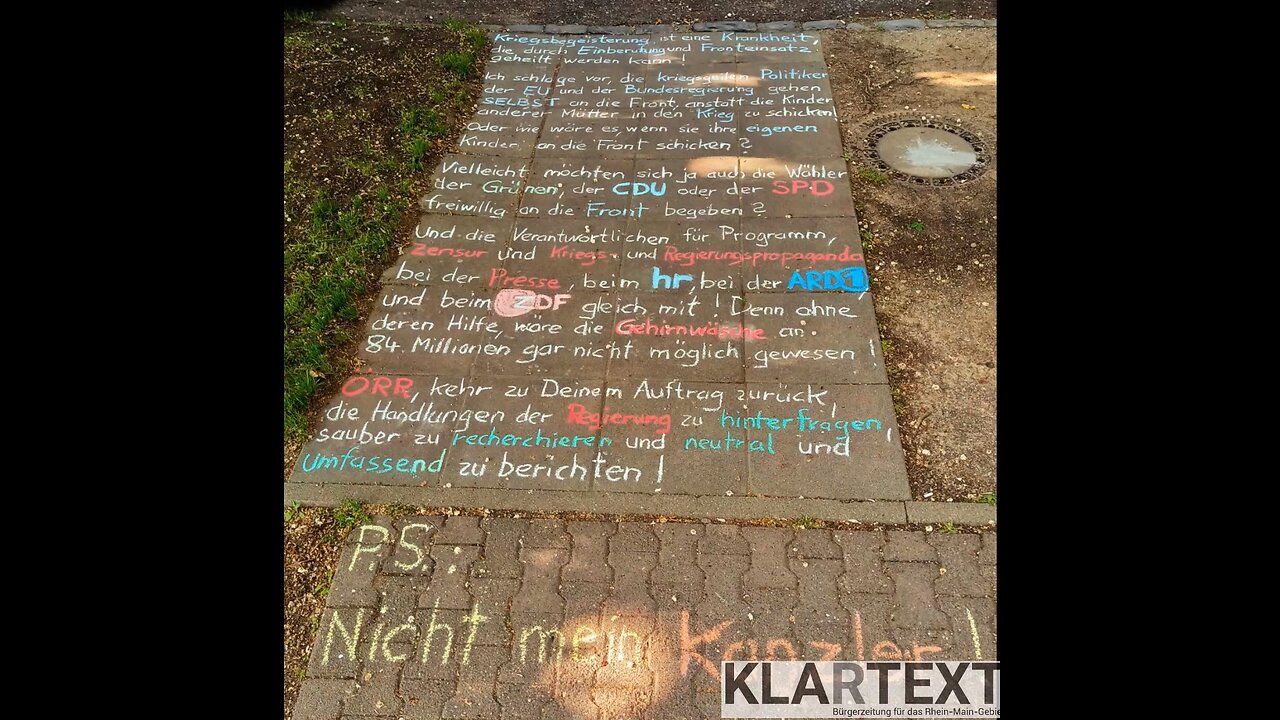 Kriegsbegeisterung ist eine Krankheit,
die durch Einberufung und Fronteinsatz
geheilt werden kann!
Ich schlage vor, die kriegsgeilen Politiker
der EU und der Bundesregierung gehen
SELBST an die Front, anstatt die Kinder
anderer Mütter in den Krieg zu schicken!
Oder wie wäre es, wenn sie ihre eigenen
Kinder an die Front schicken?
Vielleicht möchten sich ja auch die Wähler
der Grünen, der CDU oder der SPD
freiwillig an die Front begeben?
Und die Verantwortlichen für Programm,
Zensur und Kriegs- und Regierungspropaganda
bei der Presse, beim hr, bei der ARD1
und beim ZDF gleich mit! Denn ohne
deren Hilfe, wäre die Gehirnwäsche an
84 Millionen gar nicht möglich gewesen!
ÖRR, kehr zu Deinem Auftrag zurück,
die Handlungen der Regierung zu hinterfragen,
sauber zu recherchieren und neutral und
umfassend zu berichten!
P.S.:
Nicht mein Kanzler!
KLARTEXT
Bürgerzeitung für das Rhein-Main-Gebie